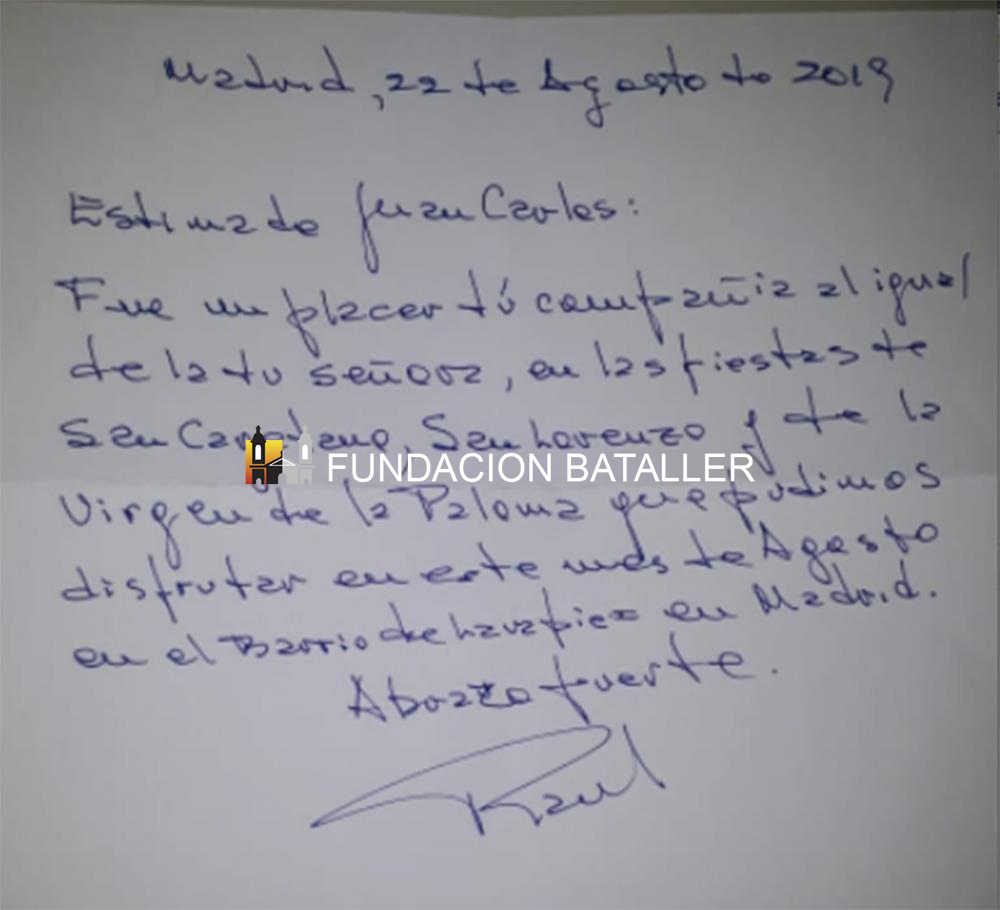 Madrid, 22 de Agosto de 2019
Estimado Juan Carlos:
Fue un placer tú compañia al igual
de la tu señora, en las fiestas de
San Cayetano, San Lorenzo y de la
FUNDACION BATALLER
Virgen de la Paloma que pudimos
disfrutar en este mes de Agosto
en el Barrio de Lavapies en Madrid.
Abrazo fuerte.
Raul